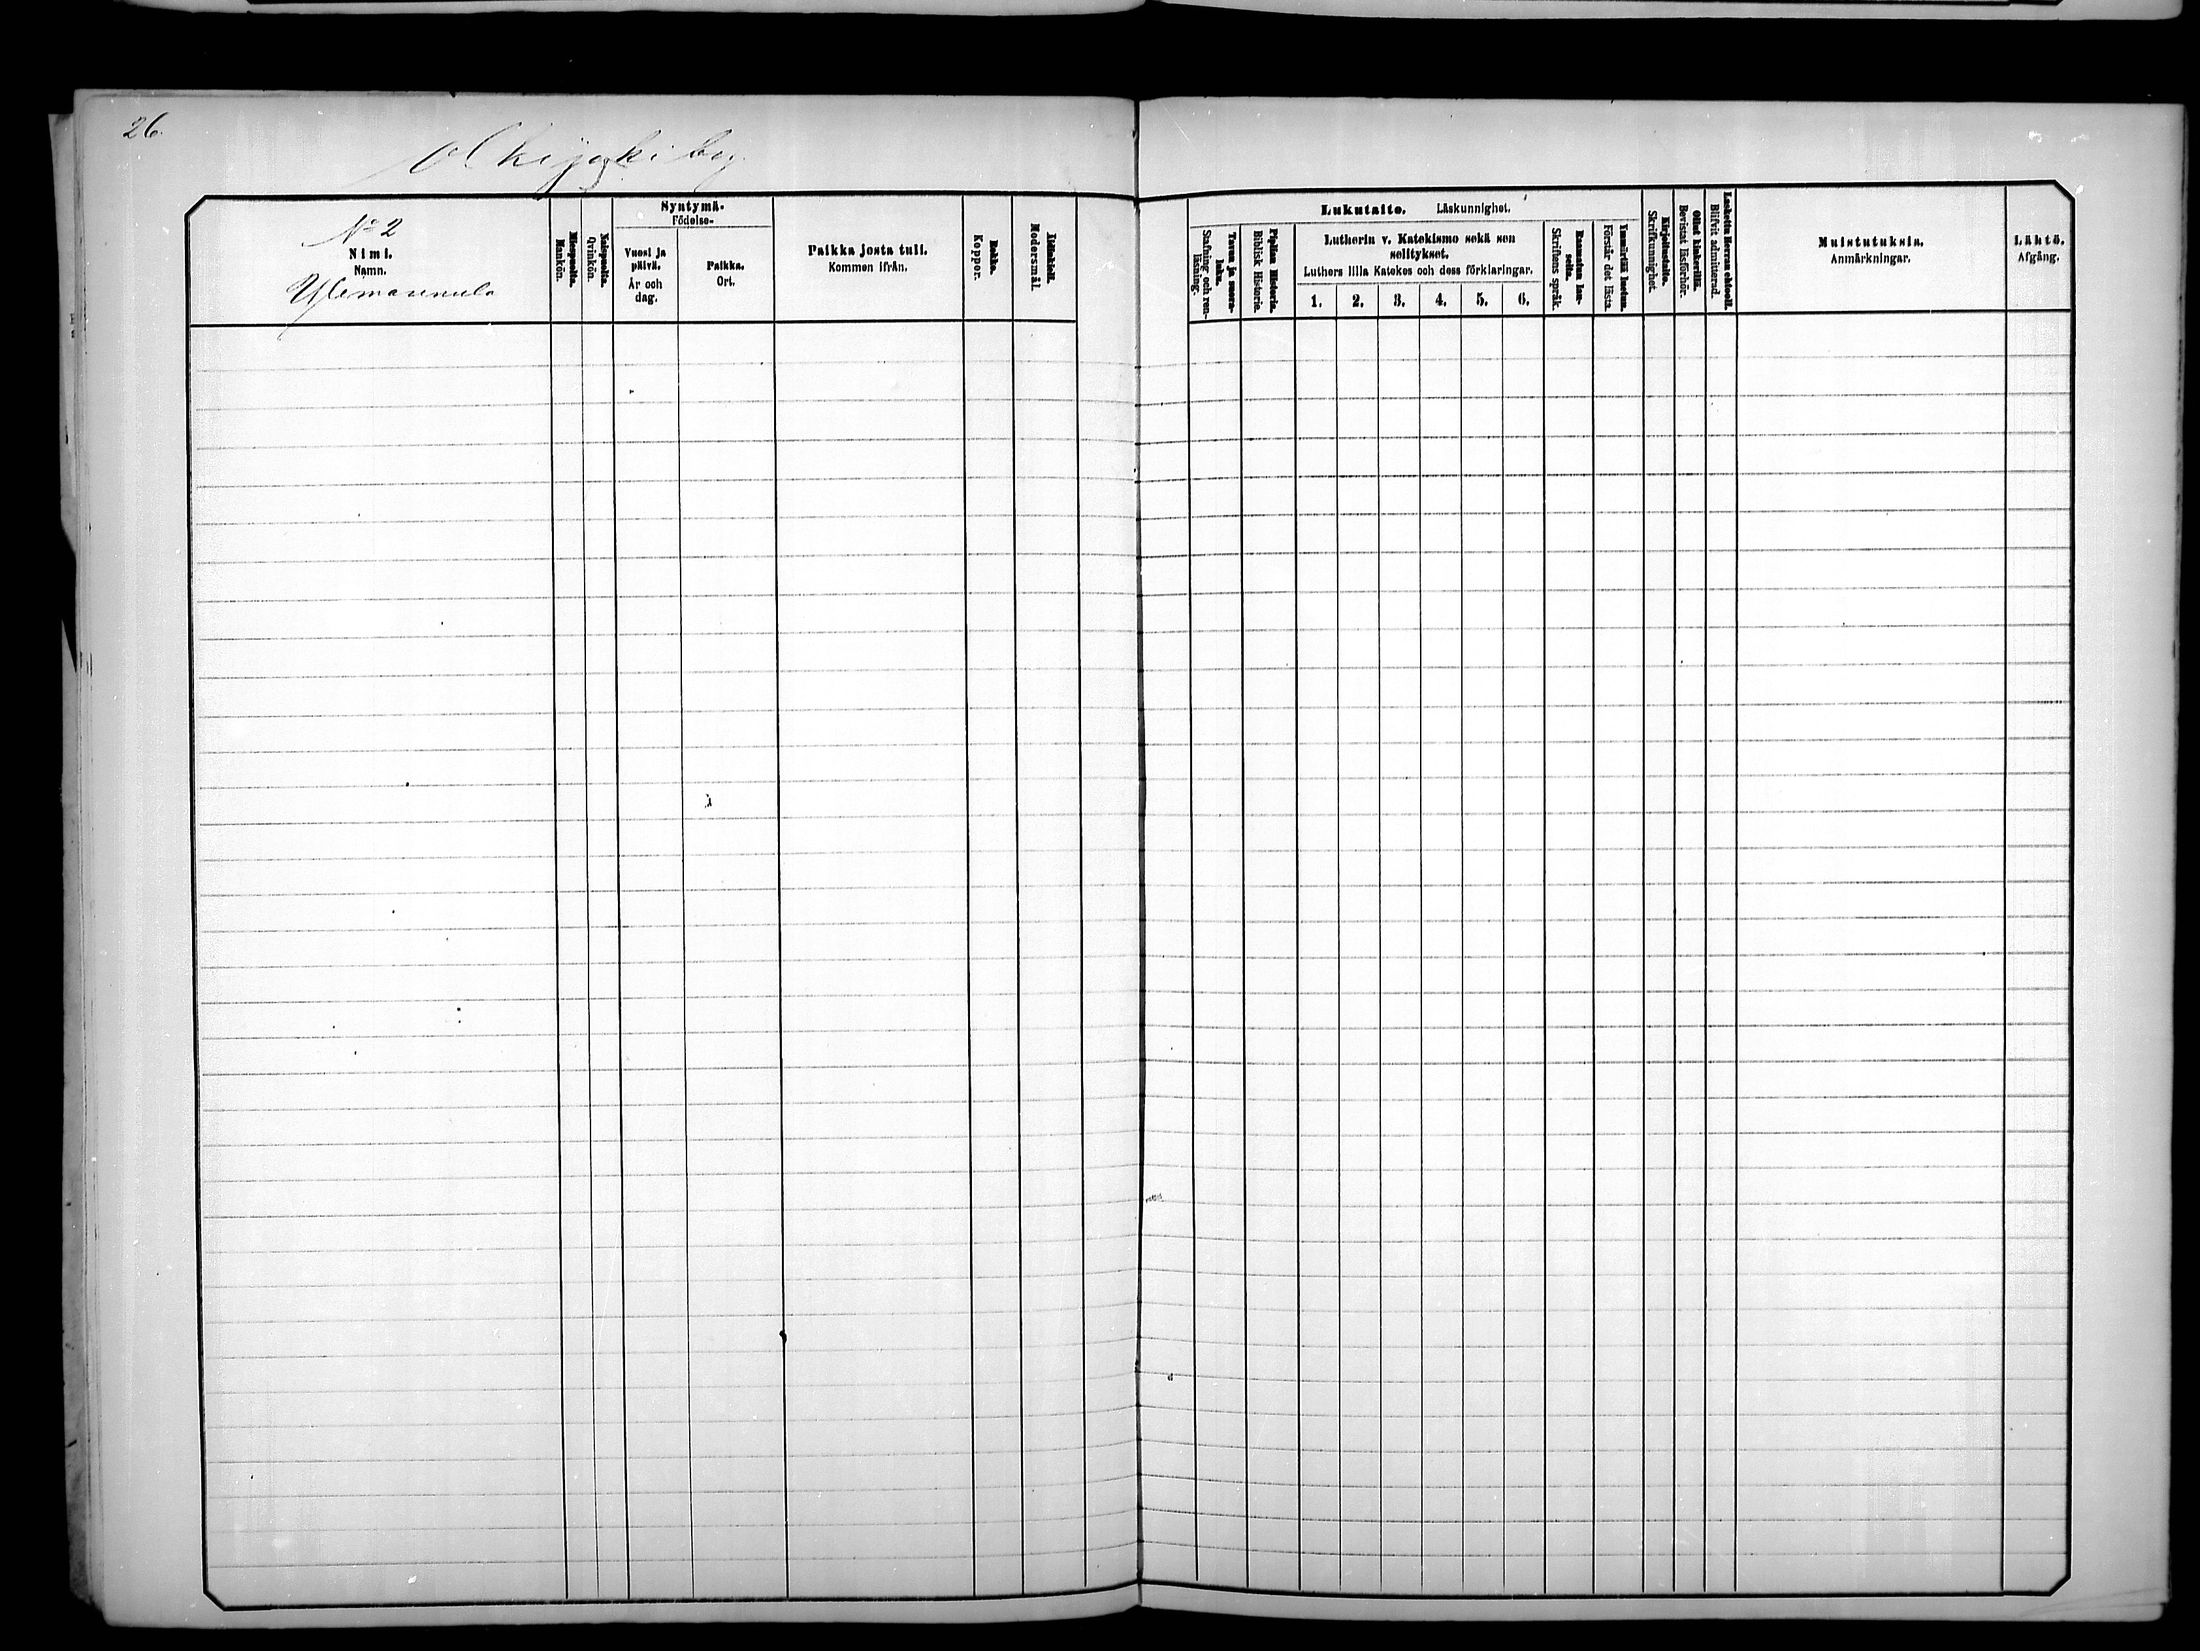 26.
Olkijoki by.
No 2
Nimi.
Namn.
Ylimannula
Miespuolia.
Mankön.
Naispuolia.
Qvinkön.
Syntymä-
Födelse-
Vuosi ja
päivä.
År och
dag.
Paikka.
Ort.
Paikka josta tuli.
Kommen ifrån.
Rokko.
Koppor.
Äidinkieli.
Modersmål.
Lukutaito. Läskunnighet.
Tavuu ja suora-
luku.
Stafning och ren-
läsning.
Piplian Historia.
Biblisk Historie.
Lutherin v. Katekismo sekä sen
selitykset.
Luthers lilla Katekes och dess förklaringar.
1. 2. 3. 4. 5. 6.
Raamatun lau-
seita.
Skriftens språk.
Ymmärtää luetun.
Förstår det lästa.
Kirjoitustaito.
Skrifkunnighet.
Ollut kinkerillä.
Bevistat läsförhör.
Laskettu Herran ehtoolle.
Blifvit admitterad.
Muistutuksia.
Anmärkningar.
Lähtö.
Afgång.